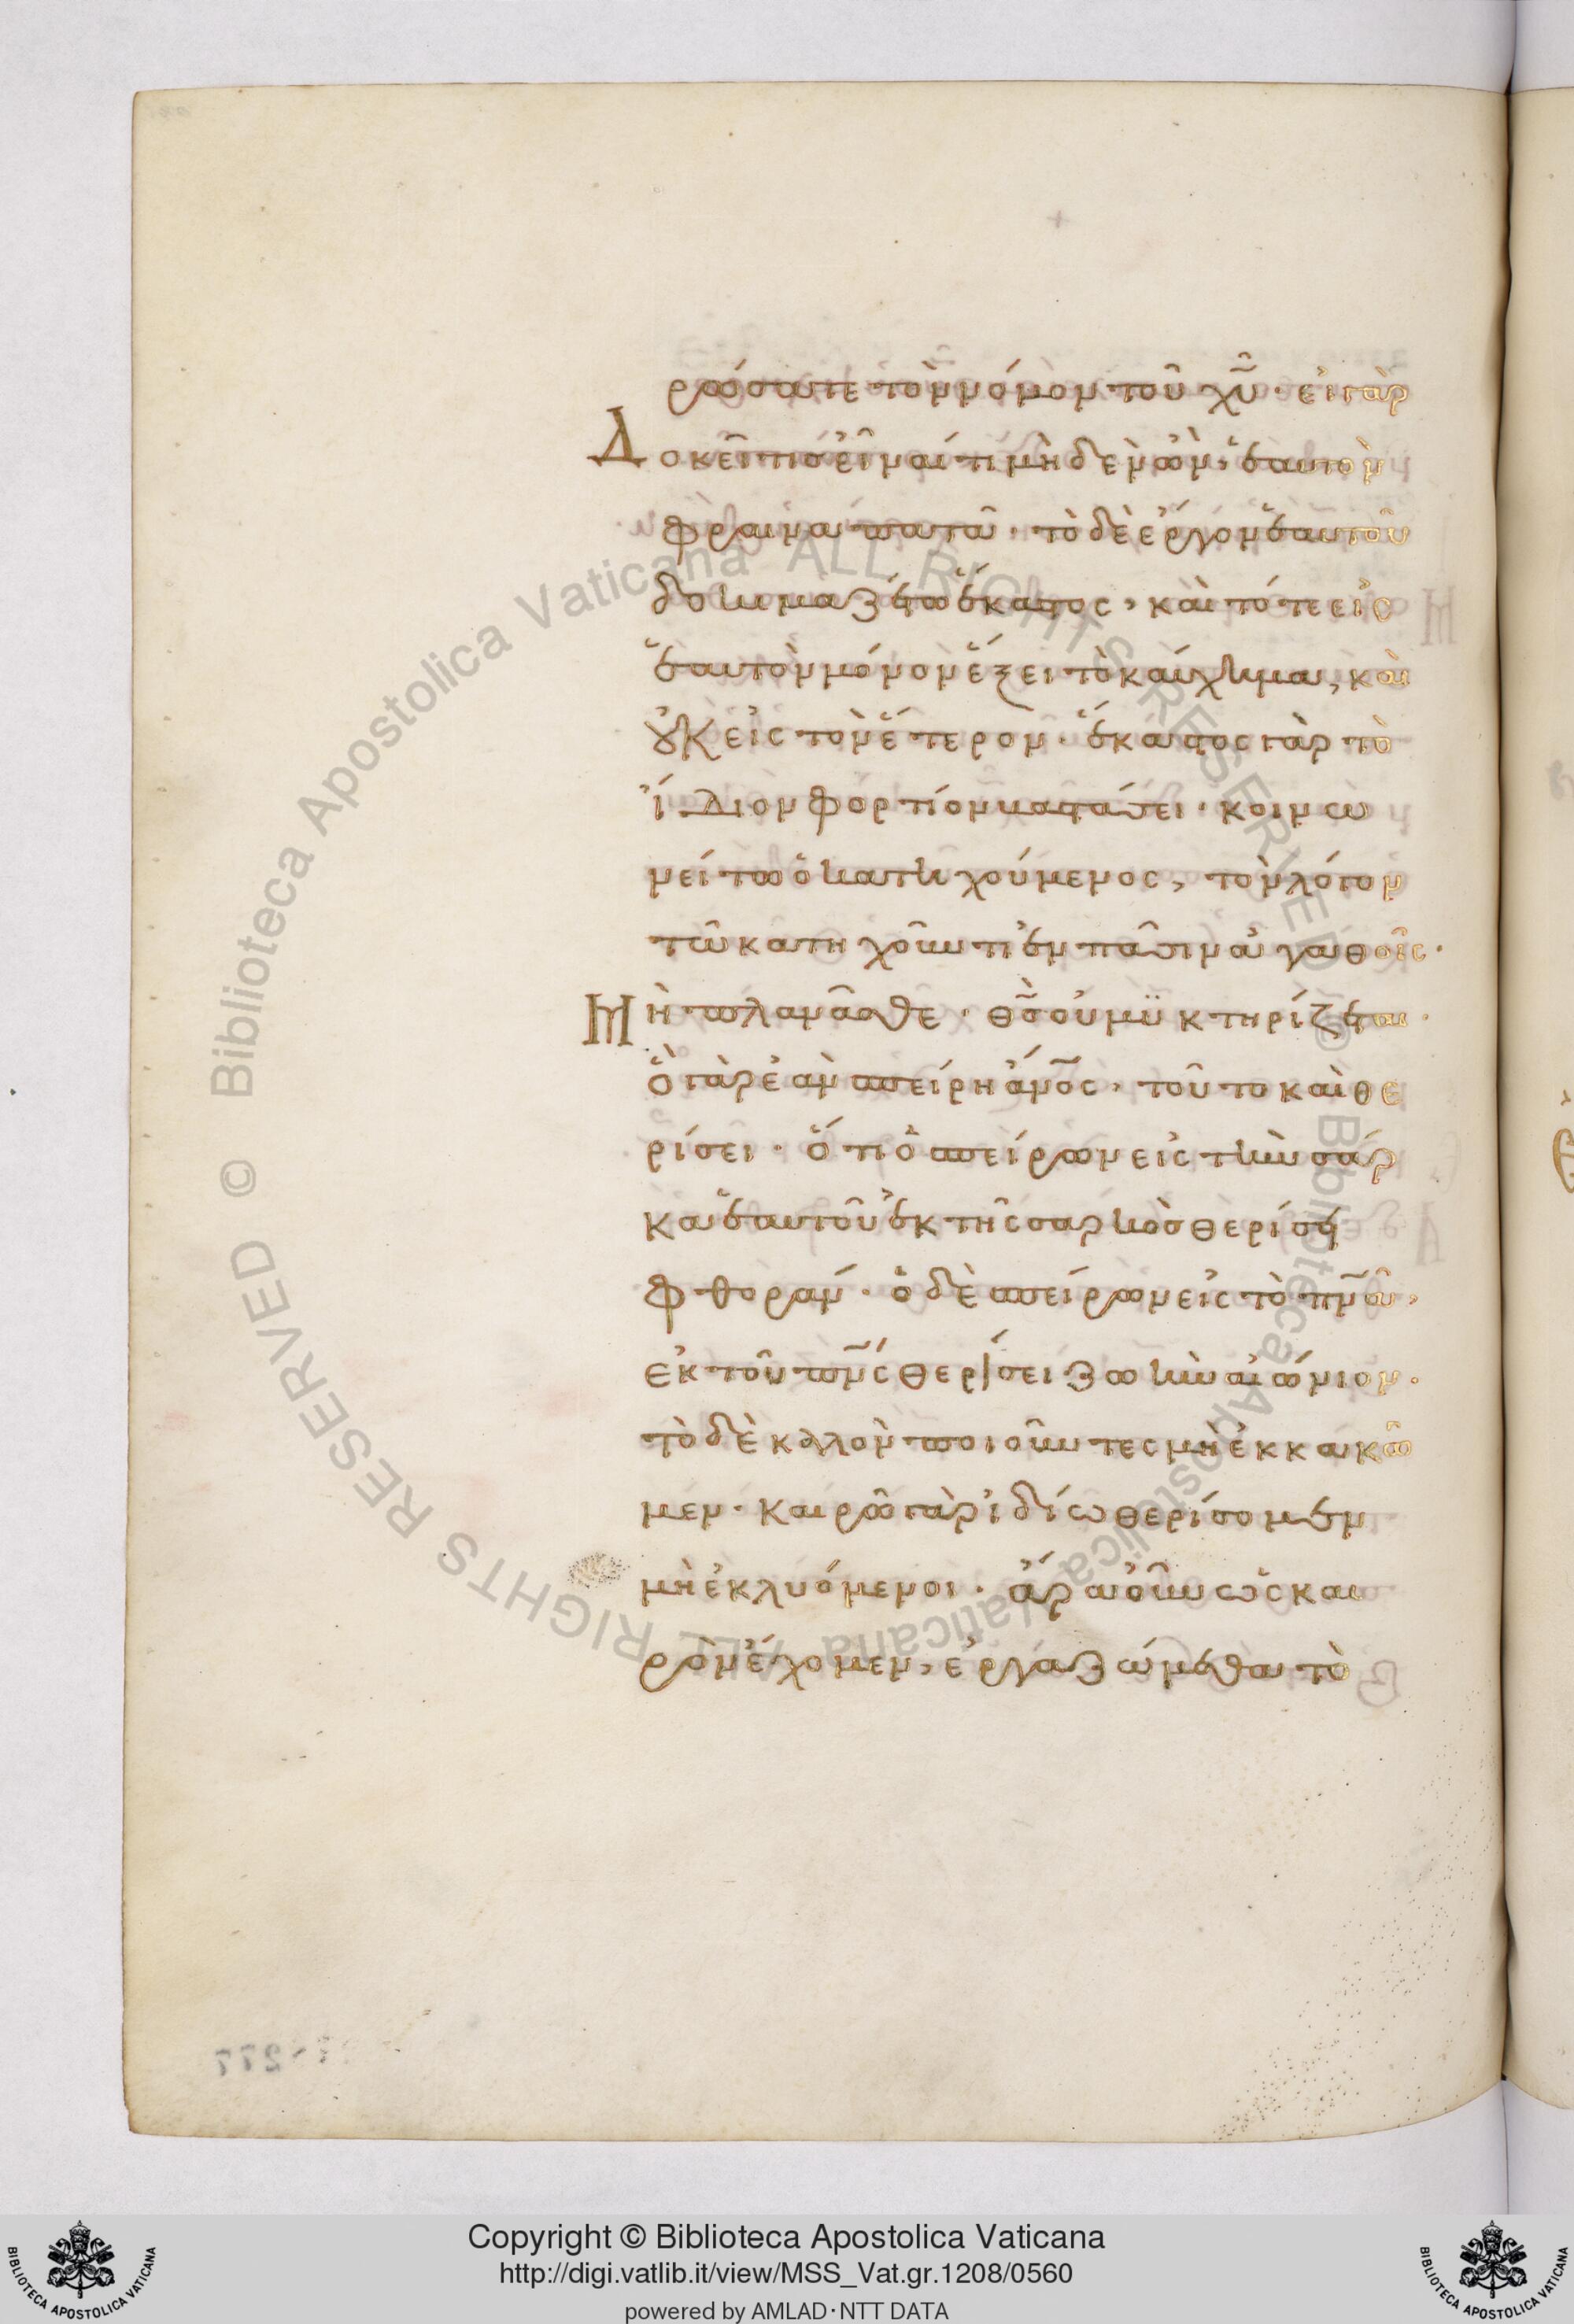 ρώσατε τὸν νόμον τοῦ χῦ · εἰ γὰρ
Δοκεῖ τισ εἶναί τι μὴδὲν ὢν, ἑαυτὸν
φρεναπατᾶ · τὸ δὲ ἔργον ἑαυτοῦ
δοκιμαζέτω ἕκαστος, καὶ τότε εἰς
ἑαυτὸν μόνον ἕξει τὸ καύχημα, καὶ
οὐκ εἰς τὸν ἕτερον · ἕκαστος γὰρ τὸ
ἴδιον φορτίον βαστάσει · κοινω
νείτω ὁ κατηχούμενος, τὸν λόγον
τῶ κατηχοῦντι ἐν πᾶσιν ἀγαθοῖς ·
Μὴ πλανᾶσθε · θ̅σ̅ οὐ μϋκτηρίζεται ·
ὃ γὰρ ἐὰν σπείρη ἄν̅ο̅ς, τοῦτο καὶ θε
ρίσει · ὅτι ὁ σπείρων εἰς τὴν σάρ
κα ἑαυτοῦ ἐκ τῆς σαρκὸσ θερίσει
φθοράν · ὁ δὲ σπείρων εἰς τὸ π̅ν̅α̅,
ἐκ τοῦ π̅ν̅ς θερίσει ζωὴν αἰώνιον ·
τὸ δὲ καλὸν ποιοῦντες μὴ ἐκκακῶ
μεν · καιρῶ γὰρ ἰδίω θερίσομεν
μὴ ἐκλυόμενοι · ἄρα οὖν ὡς και
ρὸν ἔχομεν, ἐργαζώμεθα τὸ
Copyright © Biblioteca Apostolica Vaticana
http://digi.vatlib.it/view/MSS_Vat.gr.1208/0560
powered by AMLAD·NTT DATA
BIBLIOTECA APOSTOLICA VATICANA
BIBLIOTECA APOSTOLICA VATICANA
© Biblioteca Apostolica Vaticana ALL RIGHTS RESERVED © Biblioteca Apostolica Vaticana ALL RIGHTS RESERVED